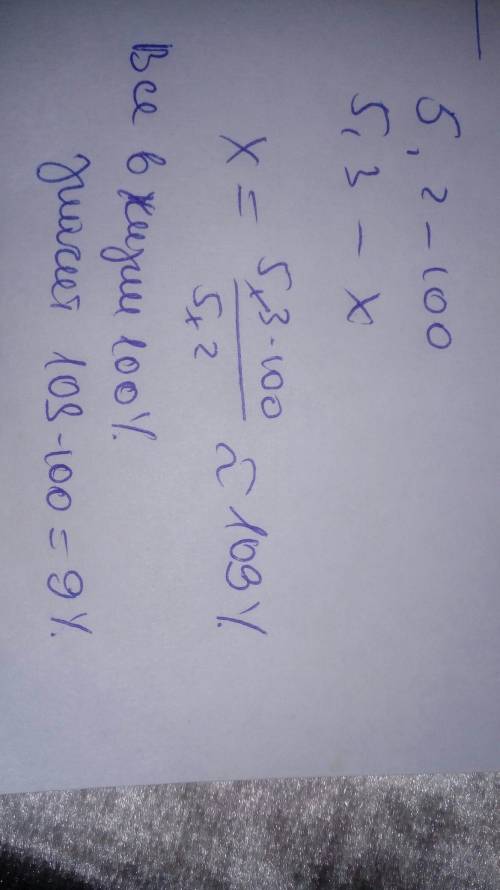 5,2 - 100
5,3 - x
x = 5,3·100 / 5,2 ≈ 109%
Все в жизни 100%
значит 109-100 = 9%